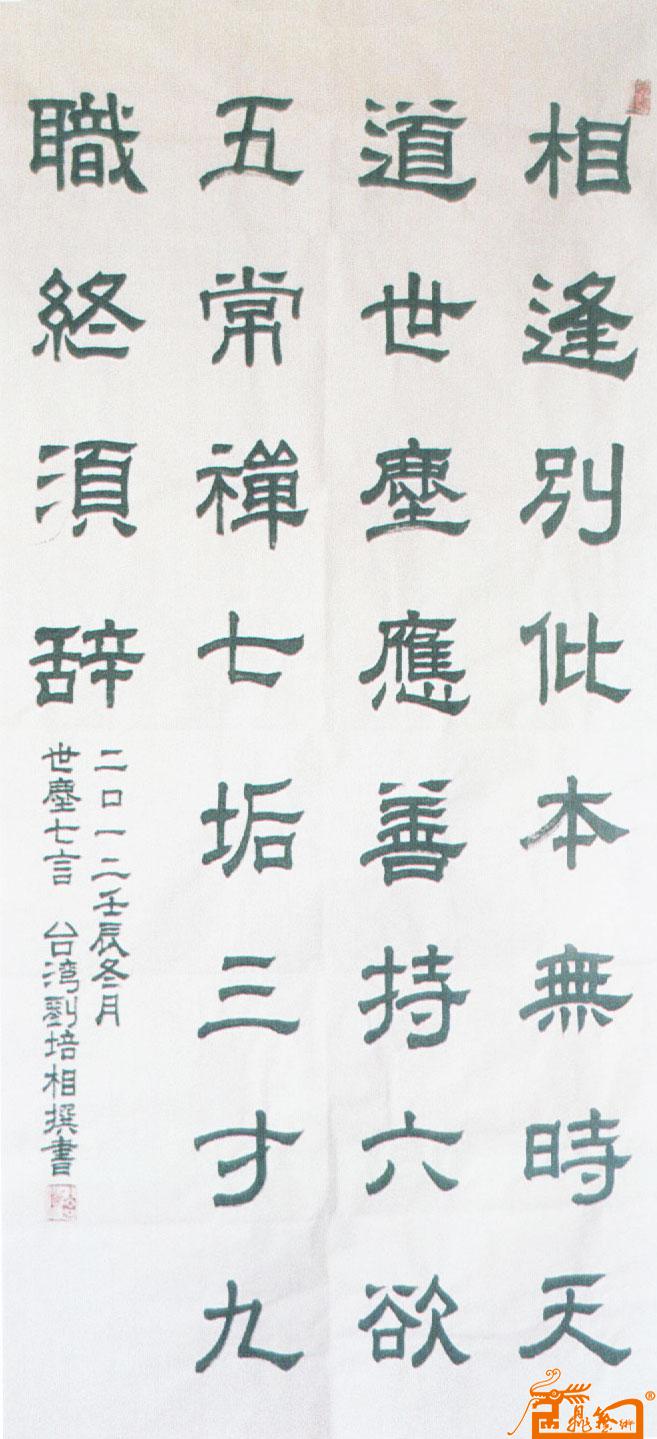 相逢別仳本無時天
道世塵應善持六欲
五常禪七垢三才九
職終須辞
二〇一二壬辰冬月
世塵七言 台湾劉培相撰書